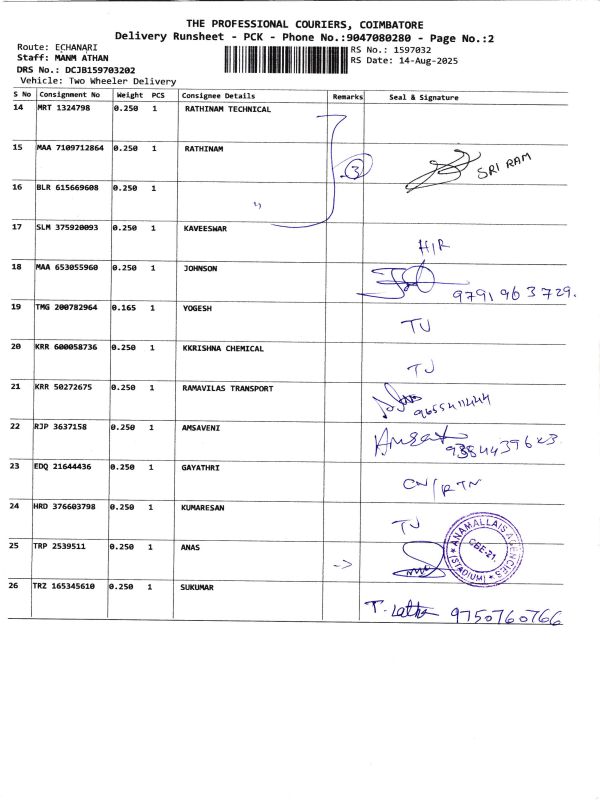 THE PROFESSIONAL COURIERS, COIMBATORE
Delivery Runsheet - PCK - Phone No.:9047080280 - Page No.:2
Route: ECHANARI
RS No.: 1597032
Staff: MANM ATHAN
RS Date: 14-Aug-2025
DRS No.: DCJB159703202
Vehicle: Two Wheeler Delivery
S No Consignment No Weight PCS Consignee Details Remarks Seal & Signature
14 MRT 1324798 0.250 1 RATHINAM TECHNICAL
15 MAA 7109712864 0.250 1 RATHINAM
3 SRI RAM
16 BLR 615669608 0.250 1
17 SLM 375920093 0.250 1 KAVEESWAR
H/R
18 MAA 653055960 0.250 1 JOHNSON
9791963729.
19 TMG 200782964 0.165 1 YOGESH
TU
20 KRR 600058736 0.250 1 KKRISHNA CHEMICAL
TJ
21 KRR 50272675 0.250 1 RAMAVILAS TRANSPORT
22 RJP 3637158 0.250 1 AMSAVENI
23 EDQ 21644436 0.250 1 GAYATHRI
CN/RTN
24 HRD 376603798 0.250 1 KUMARESAN
TJ
25 TRP 2539511 0.250 1 ANAS
->
ANAMALLAIS AGENCIES
CBE-21.
(STADIUM)
26 TRZ 165345610 0.250 1 SUKUMAR
T. Latha 9750760766